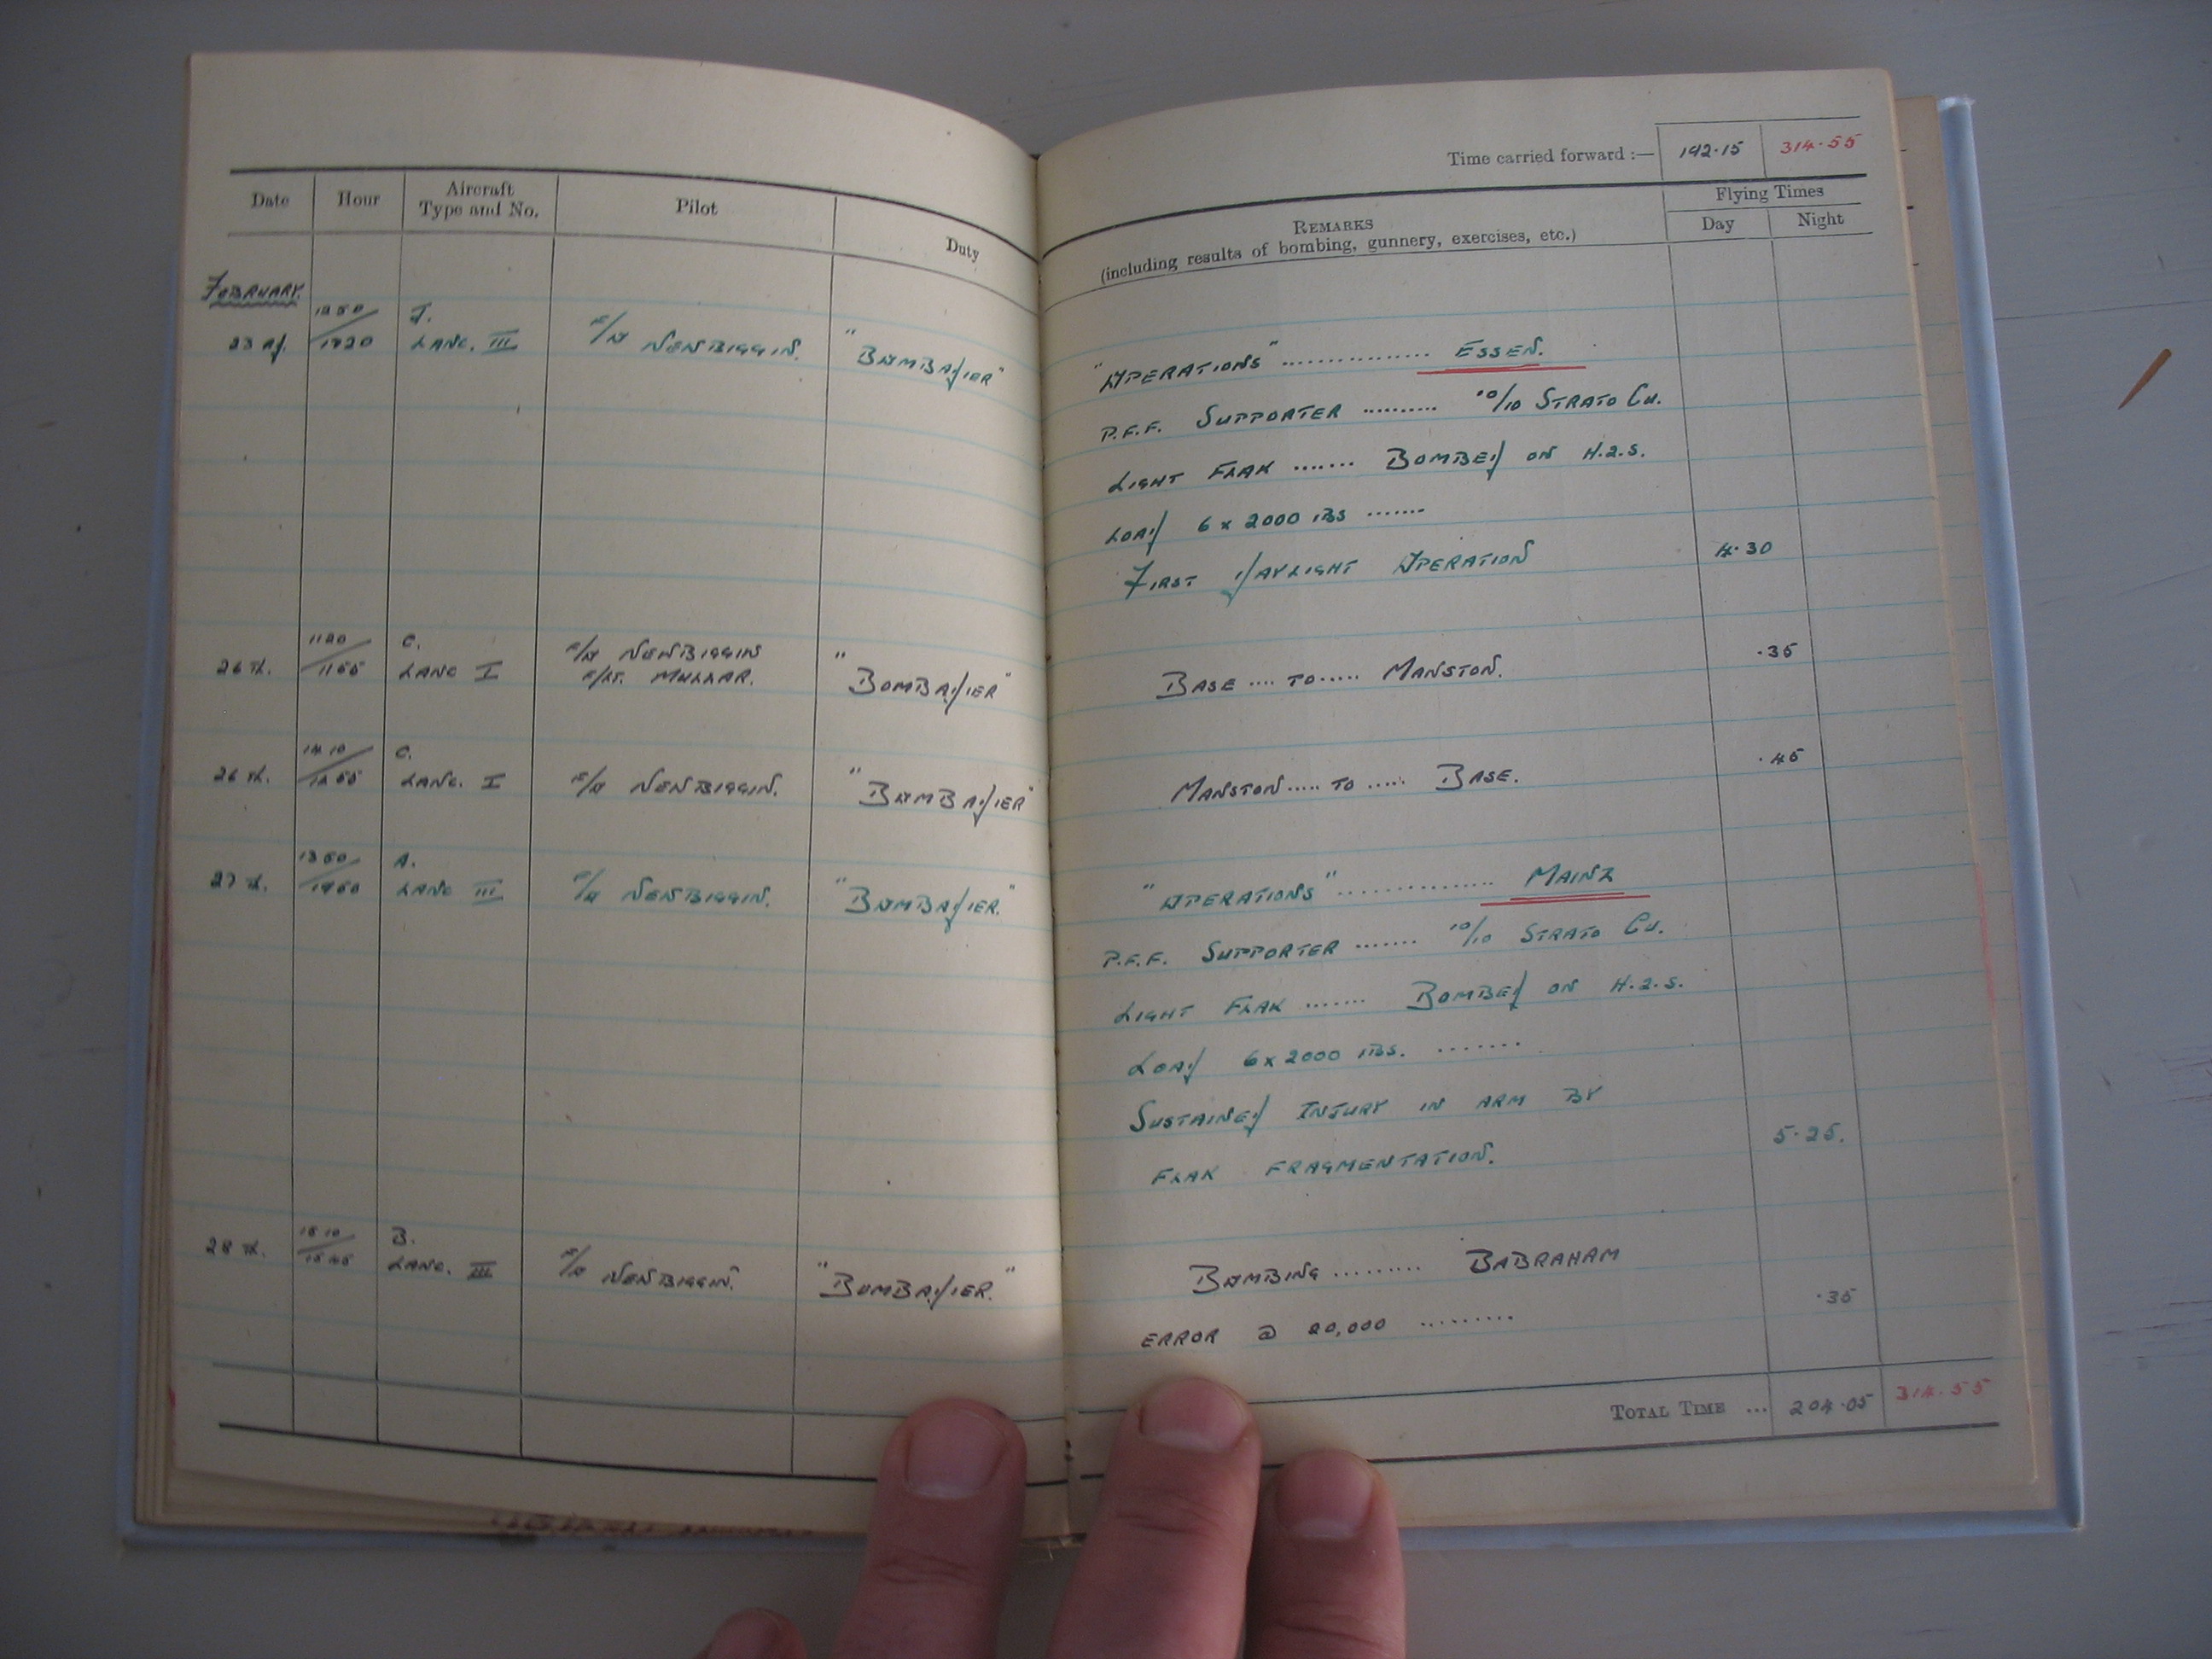 Date Hour Aircraft Type and No. Pilot Duty
FEBRUARY.
23 rd. 1250/1720 J. LANC. III F/O NEWBIGGIN. "BOMBADIER"
26 th. 1120/1155 C. LANC I F/O NEWBIGGIN F/LT. MULLAR. "BOMBADIER"
26 th. C. LANC. I F/O NEWBIGGIN. "BOMBADIER"
27 th. A. LANC III F/O NEWBIGGIN. "BOMBADIER."
28 th. 1510/1545 B. LANC. III F/O NEWBIGGIN. "BOMBADIER."
Time carried forward :— 192.15 314.55
REMARKS
(including results of bombing, gunnery, exercises, etc.)
Flying Times
Day Night
"OPERATIONS" ............... ESSEN.
P.F.F. SUPPORTER .......... 10/10 STRATO CU.
LIGHT FLAK ....... BOMBED ON H.2.S.
LOAD 6 x 2000 LBS .......
FIRST DAYLIGHT OPERATION 4.30
BASE .... TO ..... MANSTON. .35
MANSTON ..... TO ..... BASE. .45
"OPERATIONS" ............... MAINZ
P.F.F. SUPPORTER ....... 10/10 STRATO CU.
LIGHT FLAK ....... BOMBED ON H.2.S.
LOAD 6 x 2000 LBS. ........
SUSTAINED INJURY IN ARM BY
FLAK FRAGMENTATION. 5.25.
BOMBING ......... BABRAHAM
ERROR @ 20,000 ......... .35
TOTAL TIME ... 204.05 314.55